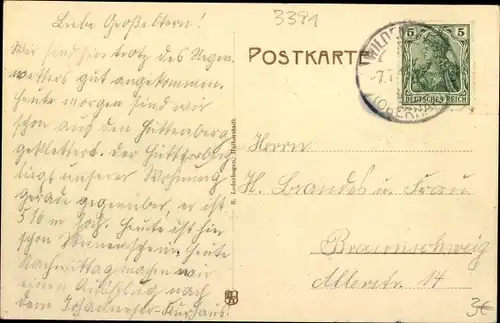 Liebe Großeltern!
Wir sind hier trotz des Regen-
wetters gut angekommen.
Heute morgen sind wir
schon auf den Hüttenberg
geklettert. Der Hüttenberg
liegt unserer Wohnung
gerade gegenüber, er ist
516 m hoch. Heute ist hier
schon Sonnenschein. Heute
Nachmittag machen wir
einen Ausflug nach
dem Johanneser-Kurhaus!
3391
POSTKARTE
5 5
DEUTSCHES REICH
R. Lederbogen, Halberstadt.
Herrn
H. Brandes u. Frau
Braunschweig
Allerstr. 14
3€